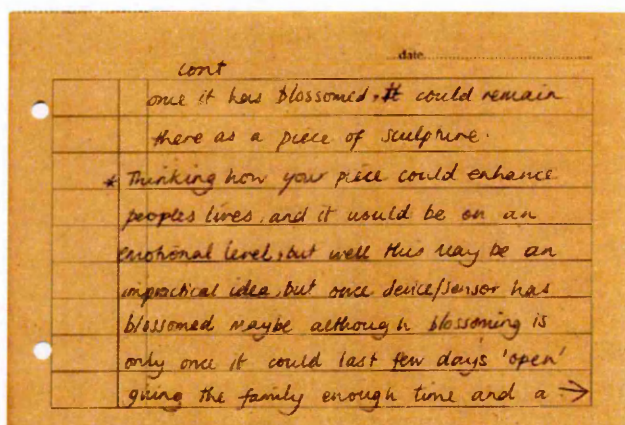 date
cont
once it has blossomed, It could remain
there as a piece of sculpture.
* Thinking how your piece could enhance
peoples lives, and it would be on an
emotional level, but well this may be an
impractical idea, but once device/sensor has
blossomed maybe although blossoming is
only once it could last few days 'open'
giving the family enough time and a →